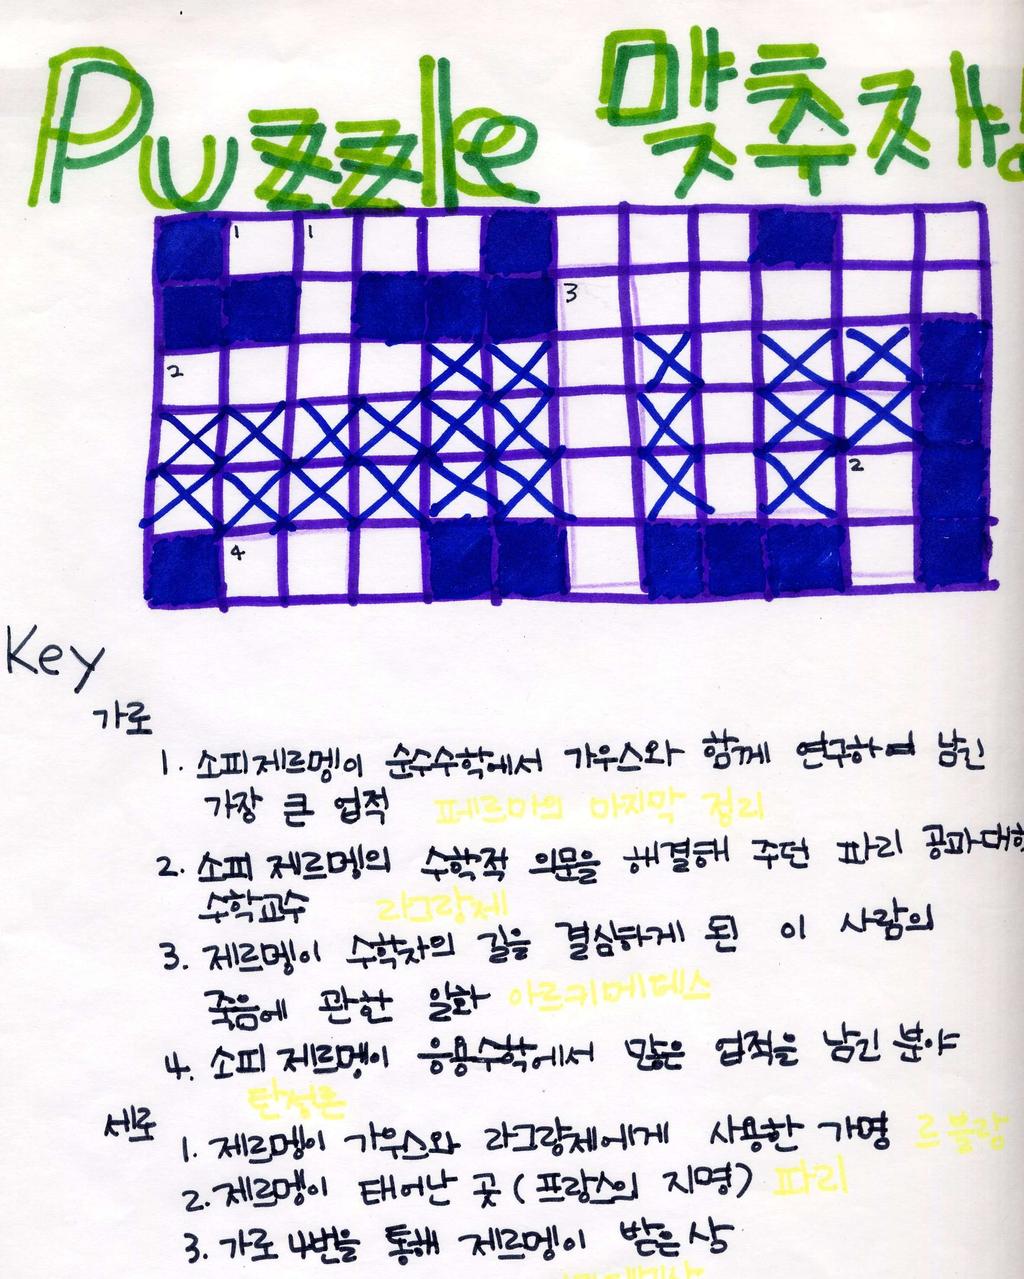 Puzzle 맞추자
1 1
3
2
2
4
Key
가로
1. 소피제르멩이 순수수학에서 가우스와 함께 연구하여 남긴
가장 큰 업적 페르마의 마지막 정리
2. 소피 제르멩의 수학적 의문을 해결해 주던 파리 공과대학
수학교수 라그랑제
3. 제르멩이 수학자의 길을 결심하게 된 이 사람의
죽음에 관한 일화 아르키메데스
4. 소피 제르멩이 응용수학에서 많은 업적을 남긴 분야
탄성론
세로
1. 제르멩이 가우스와 라그랑제에게 사용한 가명 르블랑
2. 제르멩이 태어난 곳(프랑스의 지명) 파리
3. 가로 4번을 통해 제르멩이 받은 상